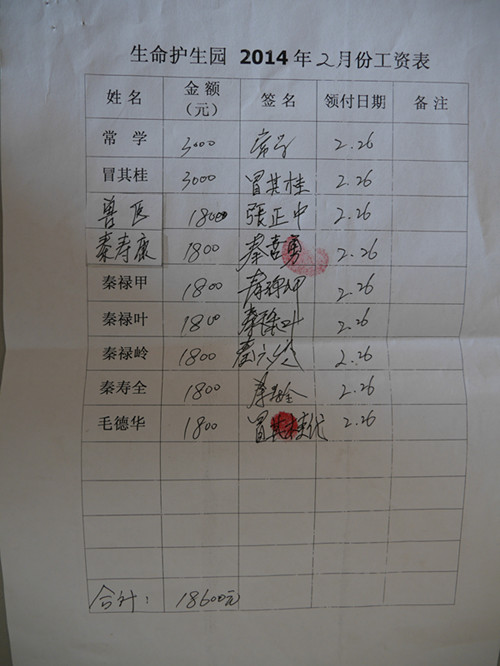 生命护生园 2014年2月份工资表
姓名 金额（元） 签名 领付日期 备注
常学 3000 常学 2.26
冒其桂 3000 冒其桂 2.26
兽医 1800 张正中 2.26
秦寿康 1800 秦喜勇 2.26
秦禄甲 1800 秦禄甲 2.26
秦禄叶 1800 秦禄叶 2.26
秦禄岭 1800 2.26
秦寿全 1800 2.26
毛德华 1800 冒其桂代 2.26
合计： 18600元